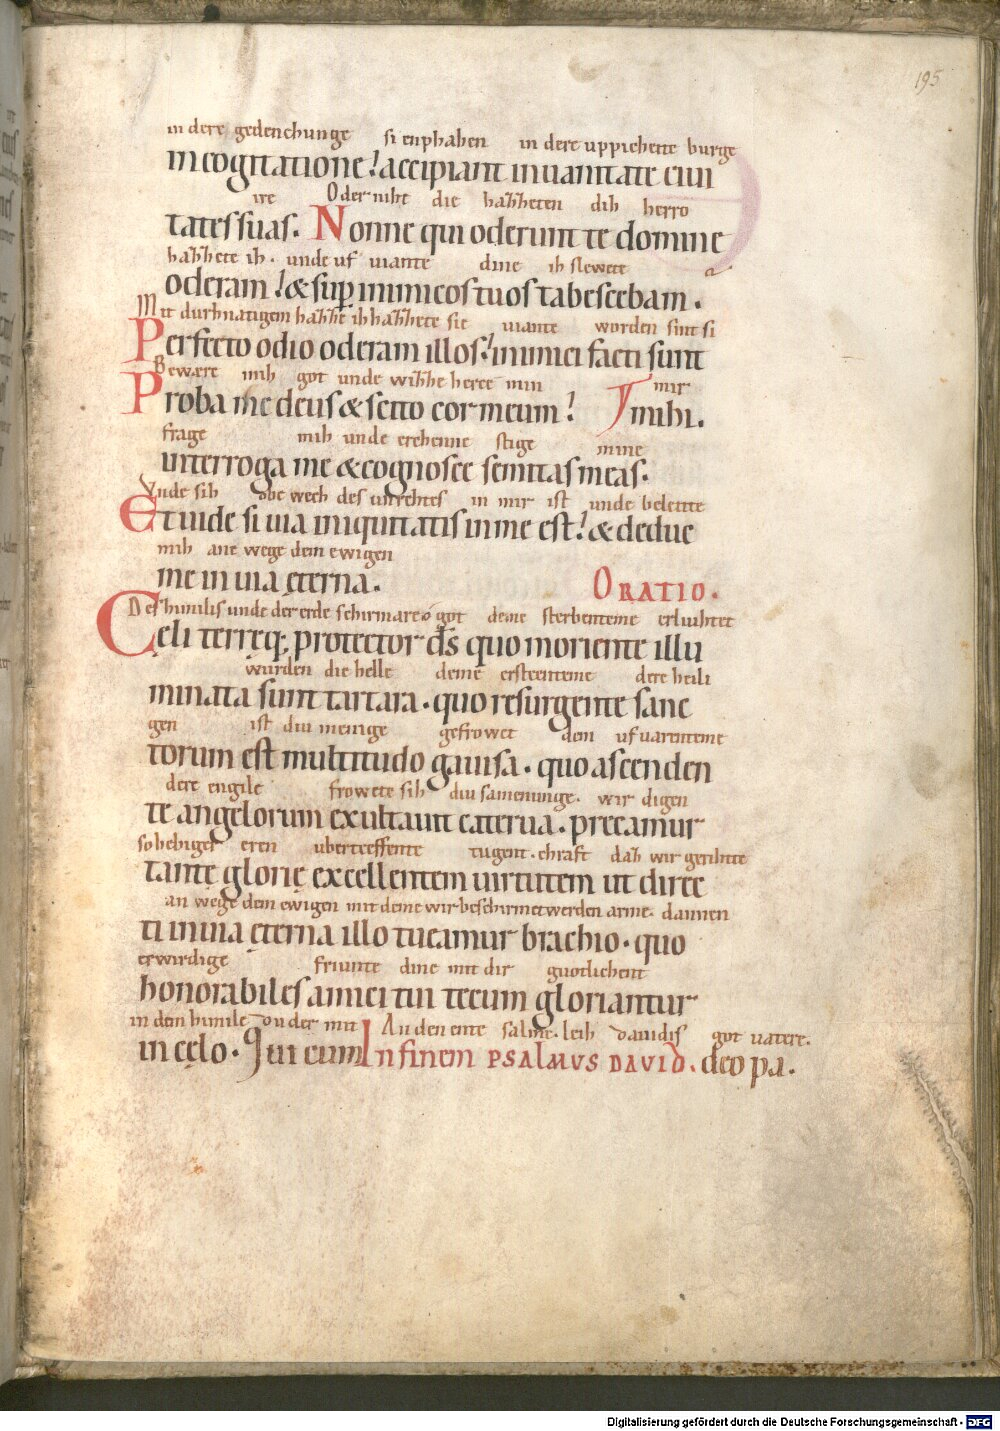 195
in dere gedenchunge si enphahen in dere uppichette burge
in cogitatione! accipiant in uanitate ciui
ire Oder niht die hahheten dih herro
tates suas. Nonne qui oderunt te domine
hahhete ih. unde uf uiante dine ih slewete
oderam! & sup inimicos tuos tabescebam.
Mit durhnatigem hahhe ih hahhete sie uiante worden sint si
Perfecto odio oderam illos! inimici facti sunt
Beware mih got unde wihhe herce min mir
Proba me deus & scito cor meum! mihi.
frage mih unde erchenne stige mine
interroga me & cognosce semitas meas.
Vnde sih obe wech des unrehtes in mir ist unde beleitte
Et uide si uia iniquitatis in me est! & deduc
mih ane wege dem ewigen
me in uia ęterna. ORATIO.
Des himilis unde der erde schirmare o got deme sterbenteme erluihtet
Cęli terręq; protector ds quo moriente illu
wurden die helle deme ersteenteme dere heili
minata sunt tartara. quo resurgente sanc
gen ist diu menige gefrowet dem ufuarenteme
torum est multitudo gauisa. quo ascenden
dere engile frowete sih diu samenunge. wir digen
te angelorum exultauit caterua. precamur
so hebiger eren ubertreffente tugent. chraft dah wir gerihtte
tantę glorię excellentem uirtutem ut direc
an wege dem ewigen mit deme wir beschirmet werden arme. dannen
ti in uia ęterna illo tueamur brachio. quo
erwirdige friunte dine mit dir guotlichent
honorabiles amici tui tecum gloriantur
in dem himile du der mit An den ente salme. leih dauidis got uatere.
in cęlo. Qui cum In finem PSALMUS DAVID. deo pa.
Digitalisierung gefördert durch die Deutsche Forschungsgemeinschaft - DFG